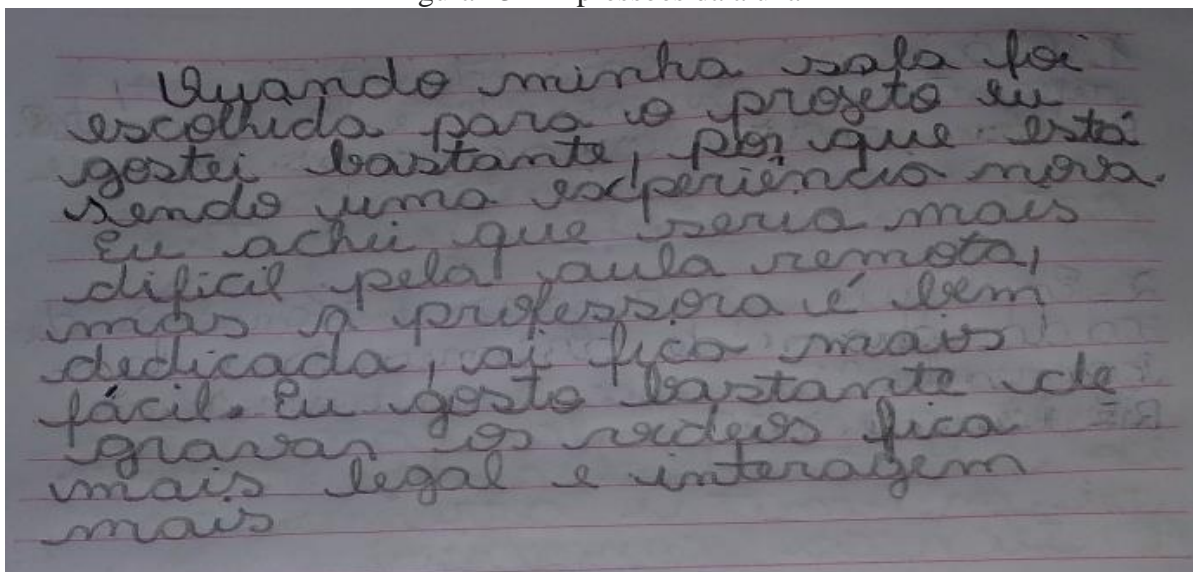 Quando minha sala foi
escolhida para o projeto eu
gostei bastante, por que está
sendo uma experiência nova.
Eu achei que seria mais
dificil pela aula remota,
mas a professora é bem
dedicada, ai fica mais
fácil. Eu gosto bastante de
gravar os videos fica
mais legal e interagem
mais